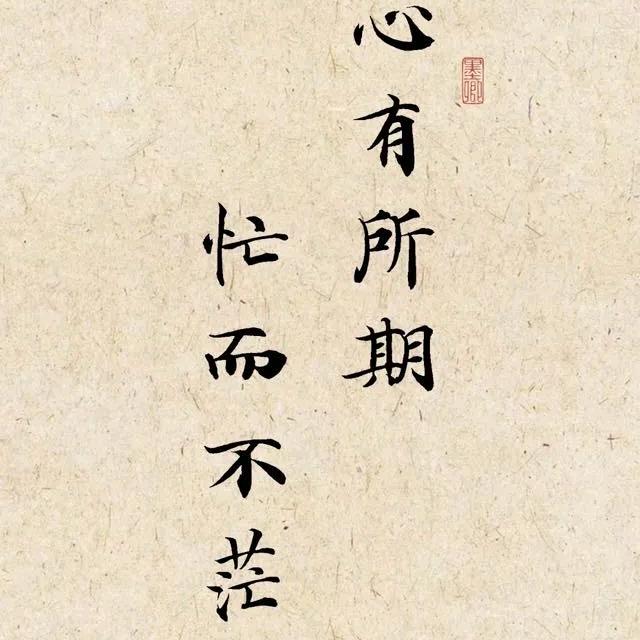 心有所期
忙而不茫
墨卿